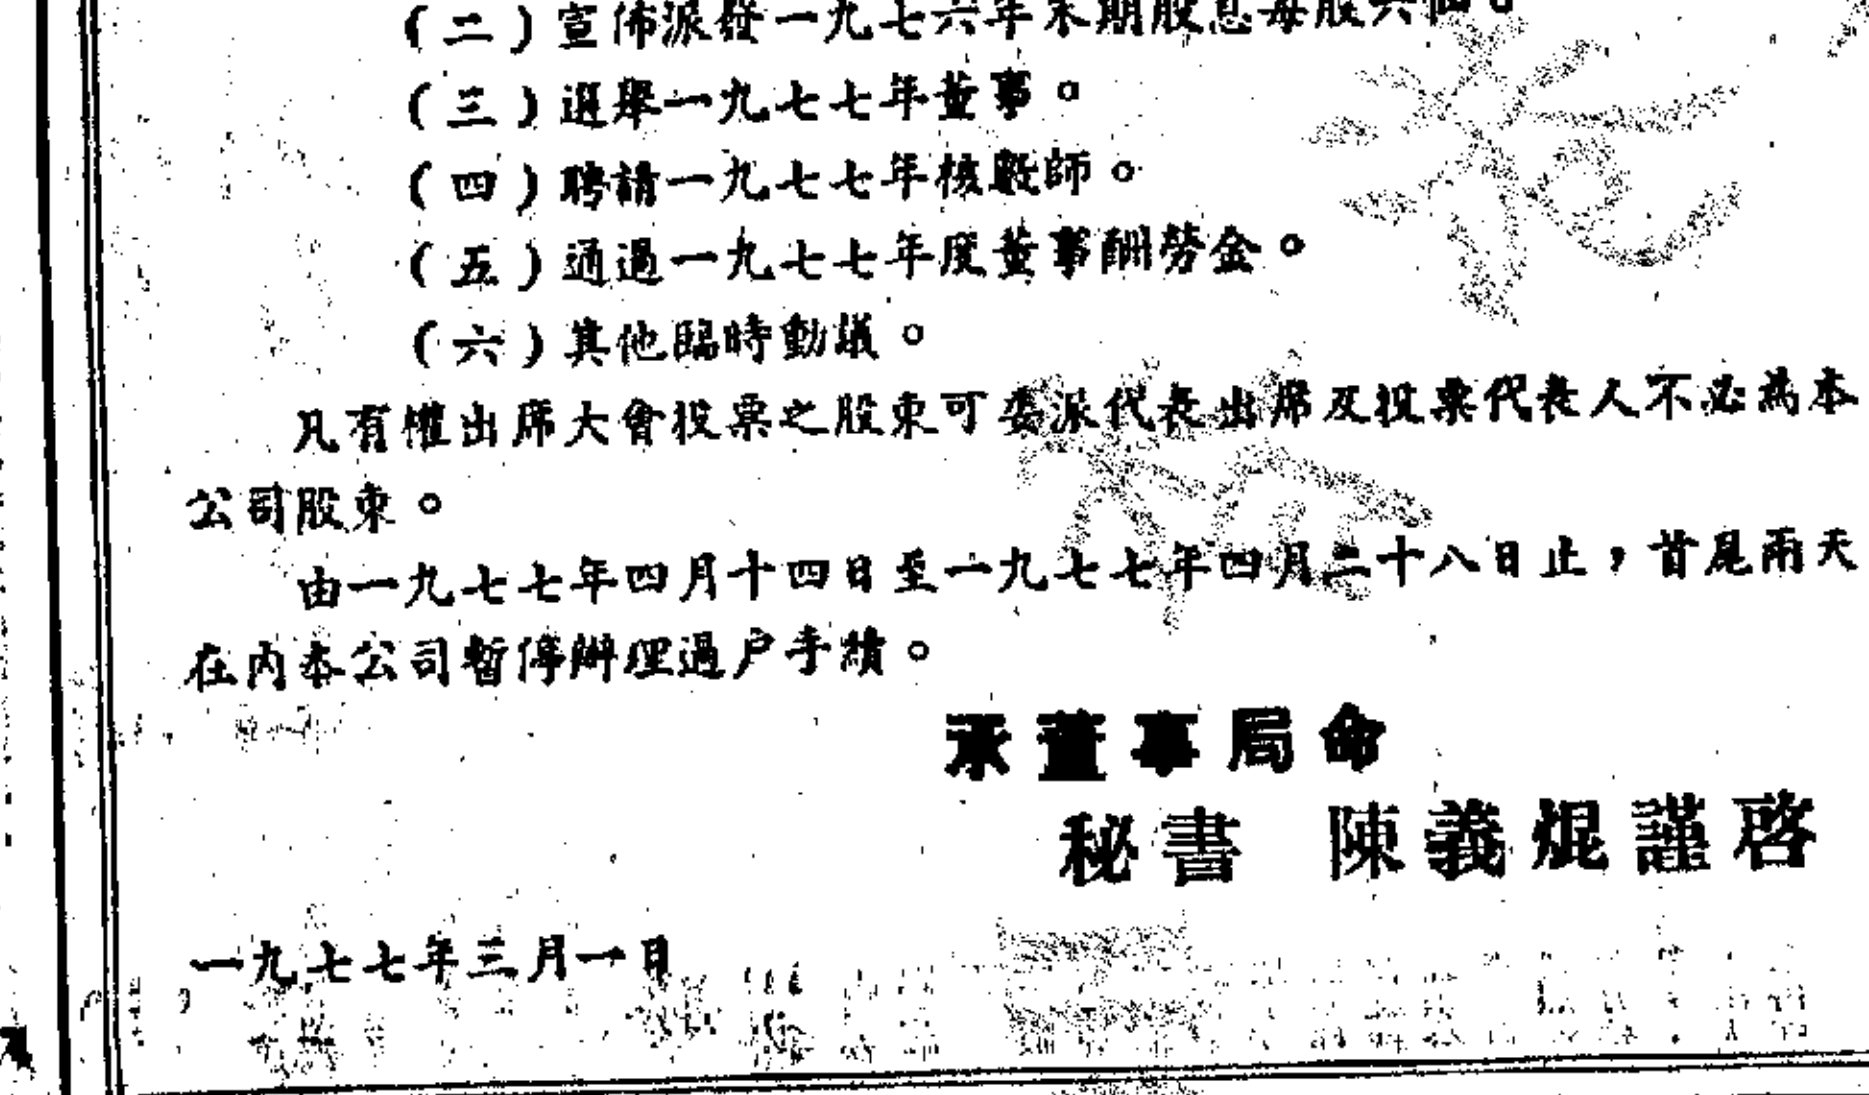 (二)宣佈派發一九七六年末期股息每股六仙。
(三)選舉一九七七年董事。
(四)聘請一九七七年核數師。
(五)通過一九七七年度董事酬勞金。
(六)其他臨時動議。
凡有權出席大會投票之股東可委派代表出席及投票代表人不必為本
公司股東。
由一九七七年四月十四日至一九七七年四月二十八日止，首尾兩天
在內本公司暫停辦理過户手續。
承董事局命
秘書 陳義焜謹啓
一九七七年三月一日